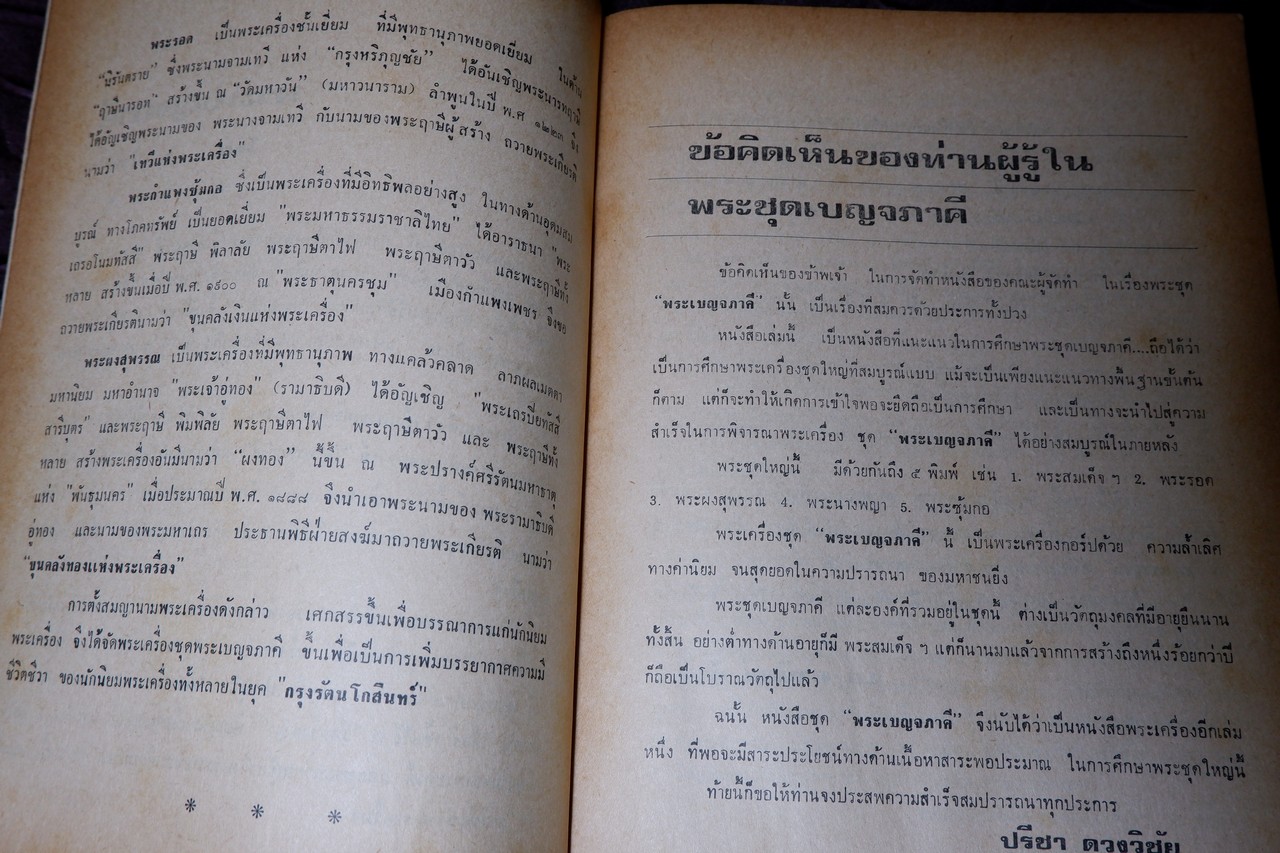 พระรอด เป็นพระเครื่องชั้นเยี่ยม ที่มีพุทธานุภาพยอดเยี่ยม ในด้าน
"นิรันตราย" ซึ่งพระนามจามเทวี แห่ง "กรุงหริภุญชัย" ได้อันเชิญพระนารทฤาษี
"ฤาษีนารอท" สร้างขึ้น ณ "วัดมหาวัน" (มหาวนาราม) ลำพูนในปี พ.ศ ๑๒๒๓ จึง
ได้อัญเชิญพระนามของ พระนางจามเทวี กับนามของพระฤาษีผู้สร้าง ถวายพระเกียรติ
นามว่า "เทวีแห่งพระเครื่อง"
พระกำแพงซุ้มกอ ซึ่งเป็นพระเครื่องที่มีอิทธิพลอย่างสูง ในทางด้านอุดมสม
บูรณ์ ทางโภคทรัพย์ เป็นยอดเยี่ยม "พระมหาธรรมราชาลิไทย" ได้อาราธนา "พระ
เถรอโนมทัสสี" พระฤาษี พิลาลัย พระฤาษีตาไฟ พระฤาษีตาวัว และพระฤาษีทั้ง
หลาย สร้างขึ้นเมื่อปี พ.ศ. ๑๙๐๐ ณ "พระธาตุนครชุม" เมืองกำแพงเพชร จึงขอ
ถวายพระเกียรตินามว่า "ขุนคลังเงินแห่งพระเครื่อง"
พระผงสุพรรณ เป็นพระเครื่องที่มีพุทธานุภาพ ทางแคล้วคลาด ลาภผลเมตตา
มหานิยม มหาอำนาจ "พระเจ้าอู่ทอง" (รามาธิบดี) ได้อัญเชิญ "พระเถรปิยทัสสี
สารีบุตร" และพระฤาษี พิมพิลัย พระฤาษีตาไฟ พระฤาษีตาวัว และ พระฤาษีทั้ง
หลาย สร้างพระเครื่องอันมีนามว่า "ผงทอง" นี้ขึ้น ณ พระปรางค์ศรีรัตนมหาธาตุ
แห่ง "พันธุมนคร" เมื่อประมาณปี พ.ศ. ๑๘๘๘ จึงนำเอาพระนามของ พระรามาธิบดี
อู่ทอง และนามของพระมหาเถร ประธานพิธีฝ่ายสงฆ์มาถวายพระเกียรติ นามว่า
"ขุนคลังทองแห่งพระเครื่อง"
การตั้งสมญานามพระเครื่องดังกล่าว เศกสรรขึ้นเพื่อบรรณาการแก่นักนิยม
พระเครื่อง จึงได้จัดพระเครื่องชุดพระเบญจภาคี ขึ้นเพื่อเป็นการเพิ่มบรรยากาศความมี
ชีวิตชีวา ของนักนิยมพระเครื่องทั้งหลายในยุค "กรุงรัตนโกสินทร์"
* * *
ข้อคิดเห็นของท่านผู้รู้ใน
พระชุดเบญจภาคี
ข้อคิดเห็นของข้าพเจ้า ในการจัดทำหนังสือของคณะผู้จัดทำ ในเรื่องพระชุด
"พระเบญจภาคี" นั้น เป็นเรื่องที่สมควรด้วยประการทั้งปวง
หนังสือเล่มนี้ เป็นหนังสือที่แนะแนวในการศึกษาพระชุดเบญจภาคี....ถือได้ว่า
เป็นการศึกษาพระเครื่องชุดใหญ่ที่สมบูรณ์แบบ แม้จะเป็นเพียงแนะแนวทางพื้นฐานขั้นต้น
ก็ตาม แต่ก็จะทำให้เกิดการเข้าใจพอจะยึดถือเป็นการศึกษา และเป็นทางจะนำไปสู่ความ
สำเร็จในการพิจารณาพระเครื่อง ชุด "พระเบญจภาคี" ได้อย่างสมบูรณ์ในภายหลัง
พระชุดใหญ่นี้ มีด้วยกันถึง ๕ พิมพ์ เช่น 1. พระสมเด็จ ๆ 2. พระรอด
3. พระผงสุพรรณ 4. พระนางพญา 5. พระซุ้มกอ
พระเครื่องชุด "พระเบญจภาคี" นี้ เป็นพระเครื่องกอร์ปด้วย ความล้ำเลิศ
ทางค่านิยม จนสุดยอดในความปรารถนา ของมหาชนยิ่ง
พระชุดเบญจภาคี แต่ละองค์ที่รวมอยู่ในชุดนี้ ต่างเป็นวัตถุมงคลที่มีอายุยืนนาน
ทั้งสิ้น อย่างต่ำทางด้านอายุก็มี พระสมเด็จ ๆ แต่ก็นานมาแล้วจากการสร้างถึงหนึ่งร้อยกว่าปี
ก็ถือเป็นโบราณวัตถุไปแล้ว
ฉนั้น หนังสือชุด "พระเบญจภาคี" จึงนับได้ว่าเป็นหนังสือพระเครื่องอีกเล่ม
หนึ่ง ที่พอจะมีสาระประโยชน์ทางด้านเนื้อหาสาระพอประมาณ ในการศึกษาพระชุดใหญ่นี้
ท้ายนี้ก็ขอให้ท่านจงประสพความสำเร็จสมปรารถนาทุกประการ
ปรีชา ดวงวิชัย